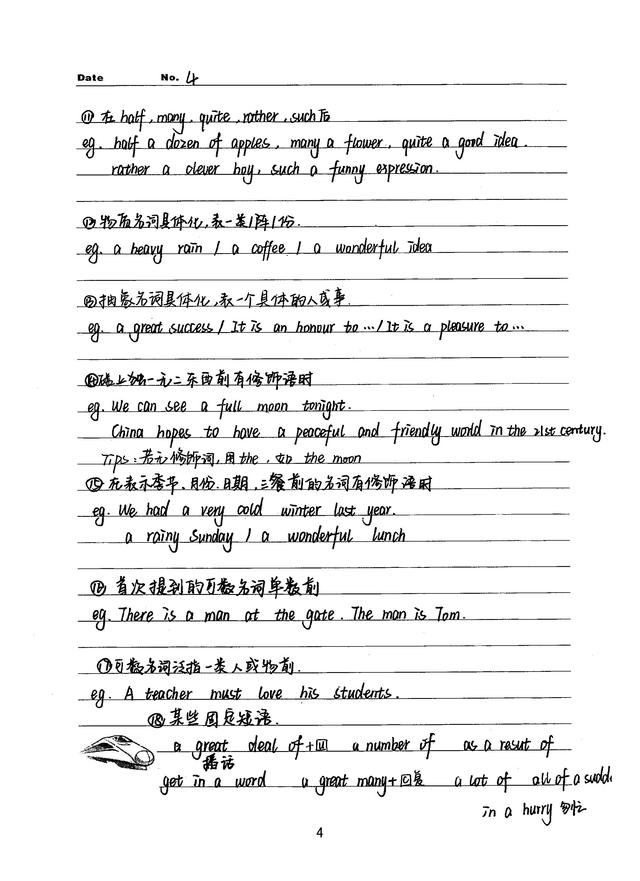 Date No. 4
⑪ 在half, many, quite, rather, such后
eg. half a dozen of apples, many a flower, quite a good idea.
rather a clever boy, such a funny expression.
⑫物质名词具体化,表一类/阵/份.
eg. a heavy rain / a coffee / a wonderful idea
⑬抽象名词具体化,表一个具体的人或事
eg. a great success / It is an honour to … / It is a pleasure to …
⑭世上独一无二东西前有修饰语时
eg. We can see a full moon tonight.
China hopes to have a peaceful and friendly world in the 21st century.
Tips:若无修饰词,用the,如 the moon
⑮在表示季节、月份、日期,三餐前的名词有修饰语时
eg. We had a very cold winter last year.
a rainy Sunday / a wonderful lunch
⑯首次提到的可数名词单数前
eg. There is a man at the gate. The man is Tom.
⑰可数名词泛指一类人或物前.
eg. A teacher must love his students.
⑱某些固定短语.
a great deal of+ a number of as a resut of
插话
get in a word a great many+ a lot of all of a sudd
in a hurry 匆忙
4